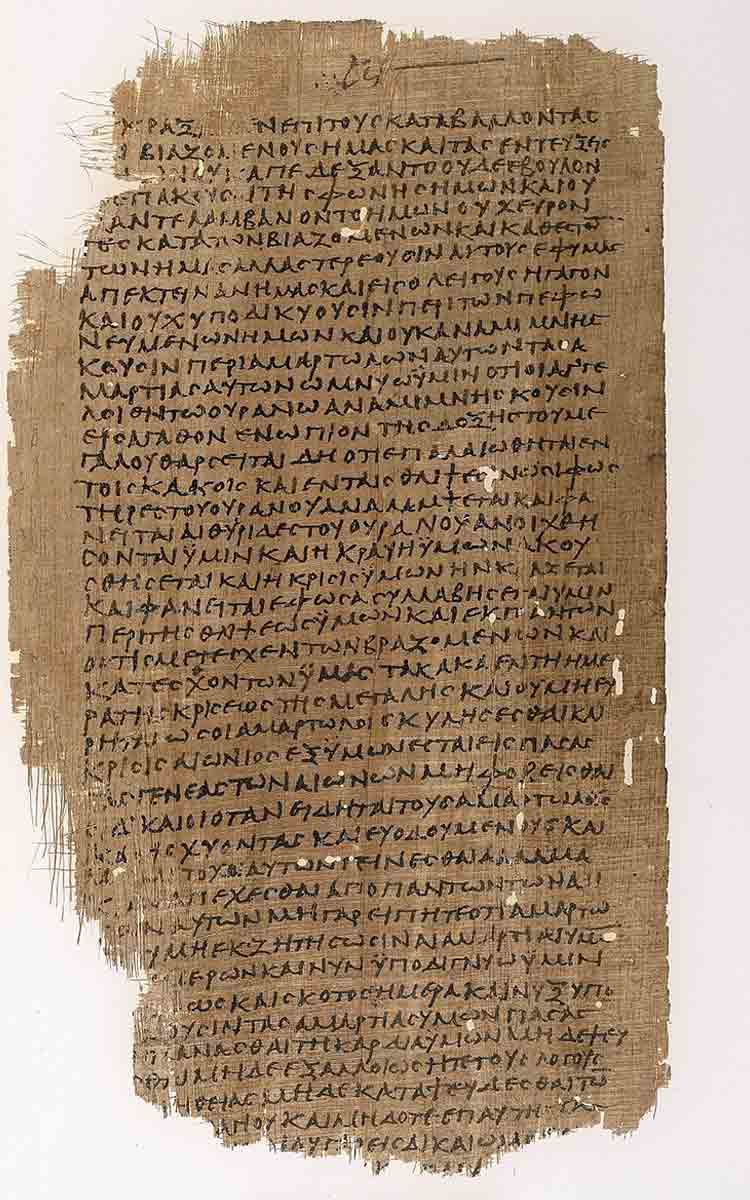 ΝΕΠΙΤΟΥΣΚΑΤΑΒΑΛΛΟΝΤΑΣ
ΒΙΑΖΟΜΕΝΟΥΣΗΜΑΣΚΑΙΤΑΣΕΝΤΕΥΞΕΙΣ
ΑΠΕΔΕΞΑΝΤΟΟΥΔΕΕΒΟΥΛΟΝ
ΕΠΑΚΟΥΣΑΙΤΗΣΦΩΝΗΣΗΜΩΝΚΑΙΟΥ
ΑΝΤΕΛΑΜΒΑΝΟΝΤΟΗΜΩΝΟΥΧΕΥΡΟΝ
ΤΕΣΚΑΤΑΤΩΝΒΙΑΖΟΜΕΝΩΝΚΑΙΚΑΤΕΣΘΟ
ΤΩΝΗΜΑΣΑΛΛΑΣΤΕΡΕΟΥΣΙΝΑΥΤΟΥΣΕΦΥΜΑΣ
ΑΠΕΚΤΕΙΝΑΝΗΜΑΣΚΑΙΕΙΣΟΛΕΙΓΟΥΣΗΓΑΓΟΝ
ΚΑΙΟΥΧΥΠΟΔΙΚΥΟΥΣΙΝΠΕΡΙΤΩΝΠΕΦΩ
ΝΕΥΜΕΝΩΝΗΜΩΝΚΑΙΟΥΚΑΝΑΜΙΜΝΗΣ
ΚΟΥΣΙΝΠΕΡΙΑΜΑΡΤΩΛΩΝΑΥΤΩΝΤΑΣΑ
ΜΑΡΤΙΑΣΑΥΤΩΝΩΜΝΥΩΫΜΙΝΟΤΙΟΙΑΓΓΕ
ΛΟΙΕΝΤΩΟΥΡΑΝΩΑΝΑΜΙΜΝΗΣΚΟΥΣΙΝ
ΕΙΣΑΓΑΘΟΝΕΝΩΠΙΟΝΤΗΣΔΟΞΗΣΤΟΥΜΕ
ΓΑΛΟΥΘΑΡΣΕΙΤΑΙΔΗΟΤΙΕΠΑΛΑΙΩΘΗΤΑΙΕΝ
ΤΟΙΣΚΑΚΟΙΣΚΑΙΕΝΤΑΙΣΘΛΙΨΕΣΙΝΩΣΙΦΩΣ
ΤΗΡΕΣΤΟΥΟΥΡΑΝΟΥΑΝΑΛΑΜΨΕΤΑΙΚΑΙΦΑ
ΝΕΙΤΑΙΑΙΘΥΡΙΔΕΣΤΟΥΟΥΡΑΝΟΥΑΝΟΙΧΘΗ
ΣΟΝΤΑΙΫΜΙΝΚΑΙΗΚΡΑΥΗΫΜΩΝΑΚΟΥ
ΣΘΗΣΕΤΑΙΚΑΙΗΚΡΙΣΙΣΫΜΩΝΗΝΚΡΑΖΕΤΑΙ
ΚΑΙΦΑΝΕΙΤΑΙΕΦΩΣΑΣΥΛΛΑΒΗΣΕΤΑΙΥΜΙΝ
ΠΕΡΙΤΗΣΘΛΙΨΕΩΣΫΜΩΝΚΑΙΕΚΠΑΝΤΩΝ
ΟΣΤΙΣΜΕΤΕΣΧΕΝΤΩΝΒΙΑΖΟΜΕΝΩΝΚΑΙ
ΚΑΤΕΣΘΟΝΤΩΝΫΜΑΣΤΑΚΑΚΑΕΝΤΗΗΜΕ
ΡΑΤΗΣΚΡΙΣΕΩΣΤΗΣΜΕΓΑΛΗΣΚΑΙΟΥΜΗΕΥ
ΡΗΤΑΙΩΣΟΙΑΜΑΡΤΩΛΟΙΣΚΥΛΗΣΕΣΘΑΙΚΑΙ
ΚΡΙΣΙΣΑΙΩΝΙΟΣΕΞΫΜΩΝΕΣΤΑΙΕΙΣΠΑΣΑΣ
ΤΑΣΓΕΝΕΑΣΤΩΝΑΙΩΝΩΝΜΗΦΟΒΕΙΣΘΑΙ
ΔΙΚΑΙΟΙΟΤΑΝΕΙΔΗΤΑΙΤΟΥΣΑΜΑΡΤΩΛΟΥΣ
ΣΧΥΟΝΤΑΣΚΑΙΕΥΟΔΟΥΜΕΝΟΥΣΚΑΙ
ΤΟΧΟΙΑΥΤΩΝΓΕΙΝΕΣΘΑΙΑΛΛΑΜΑ
ΑΠΕΧΕΣΘΑΙΑΠΟΠΑΝΤΩΝΤΩΝΑΔΙ
ΑΥΤΩΝΜΗΓΑΡΕΙΠΗΤΕΟΤΙΑΜΑΡΤΩ
ΜΗΕΚΖΗΤΗΣΩΣΙΝΑΙΑΜΑΡΤΙΑΙΥΜΩ
ΜΕΡΩΝΚΑΙΝΥΝΫΠΟΔΙΓΝΥΩΫΜΙΝ
ΩΣΚΑΙΣΚΟΤΟΣΗΜΕΡΑΚΑΙΝΥΞΥΠΟ
ΟΥΣΙΝΤΑΣΑΜΑΡΤΙΑΣΥΜΩΝΠΑΣΑΣ
ΠΛΑΝΑΣΘΑΙΤΗΚΑΡΔΙΑΥΜΩΝΜΗΔΕΨΕΥ
ΜΗΔΕΕΞΑΛΛΟΙΩΣΗΤΕΤΟΥΣΛΟΓΟΥΣ
ΗΘΕΙΑΣΜΗΔΕΚΑΤΑΨΕΥΔΕΣΘΑΙΤΩ
ΓΙΟΥΚΑΙΜΗΔΟΤΕΕΠΑΥΤΗ
ΕΙΣΔΙΚΑΙΩ